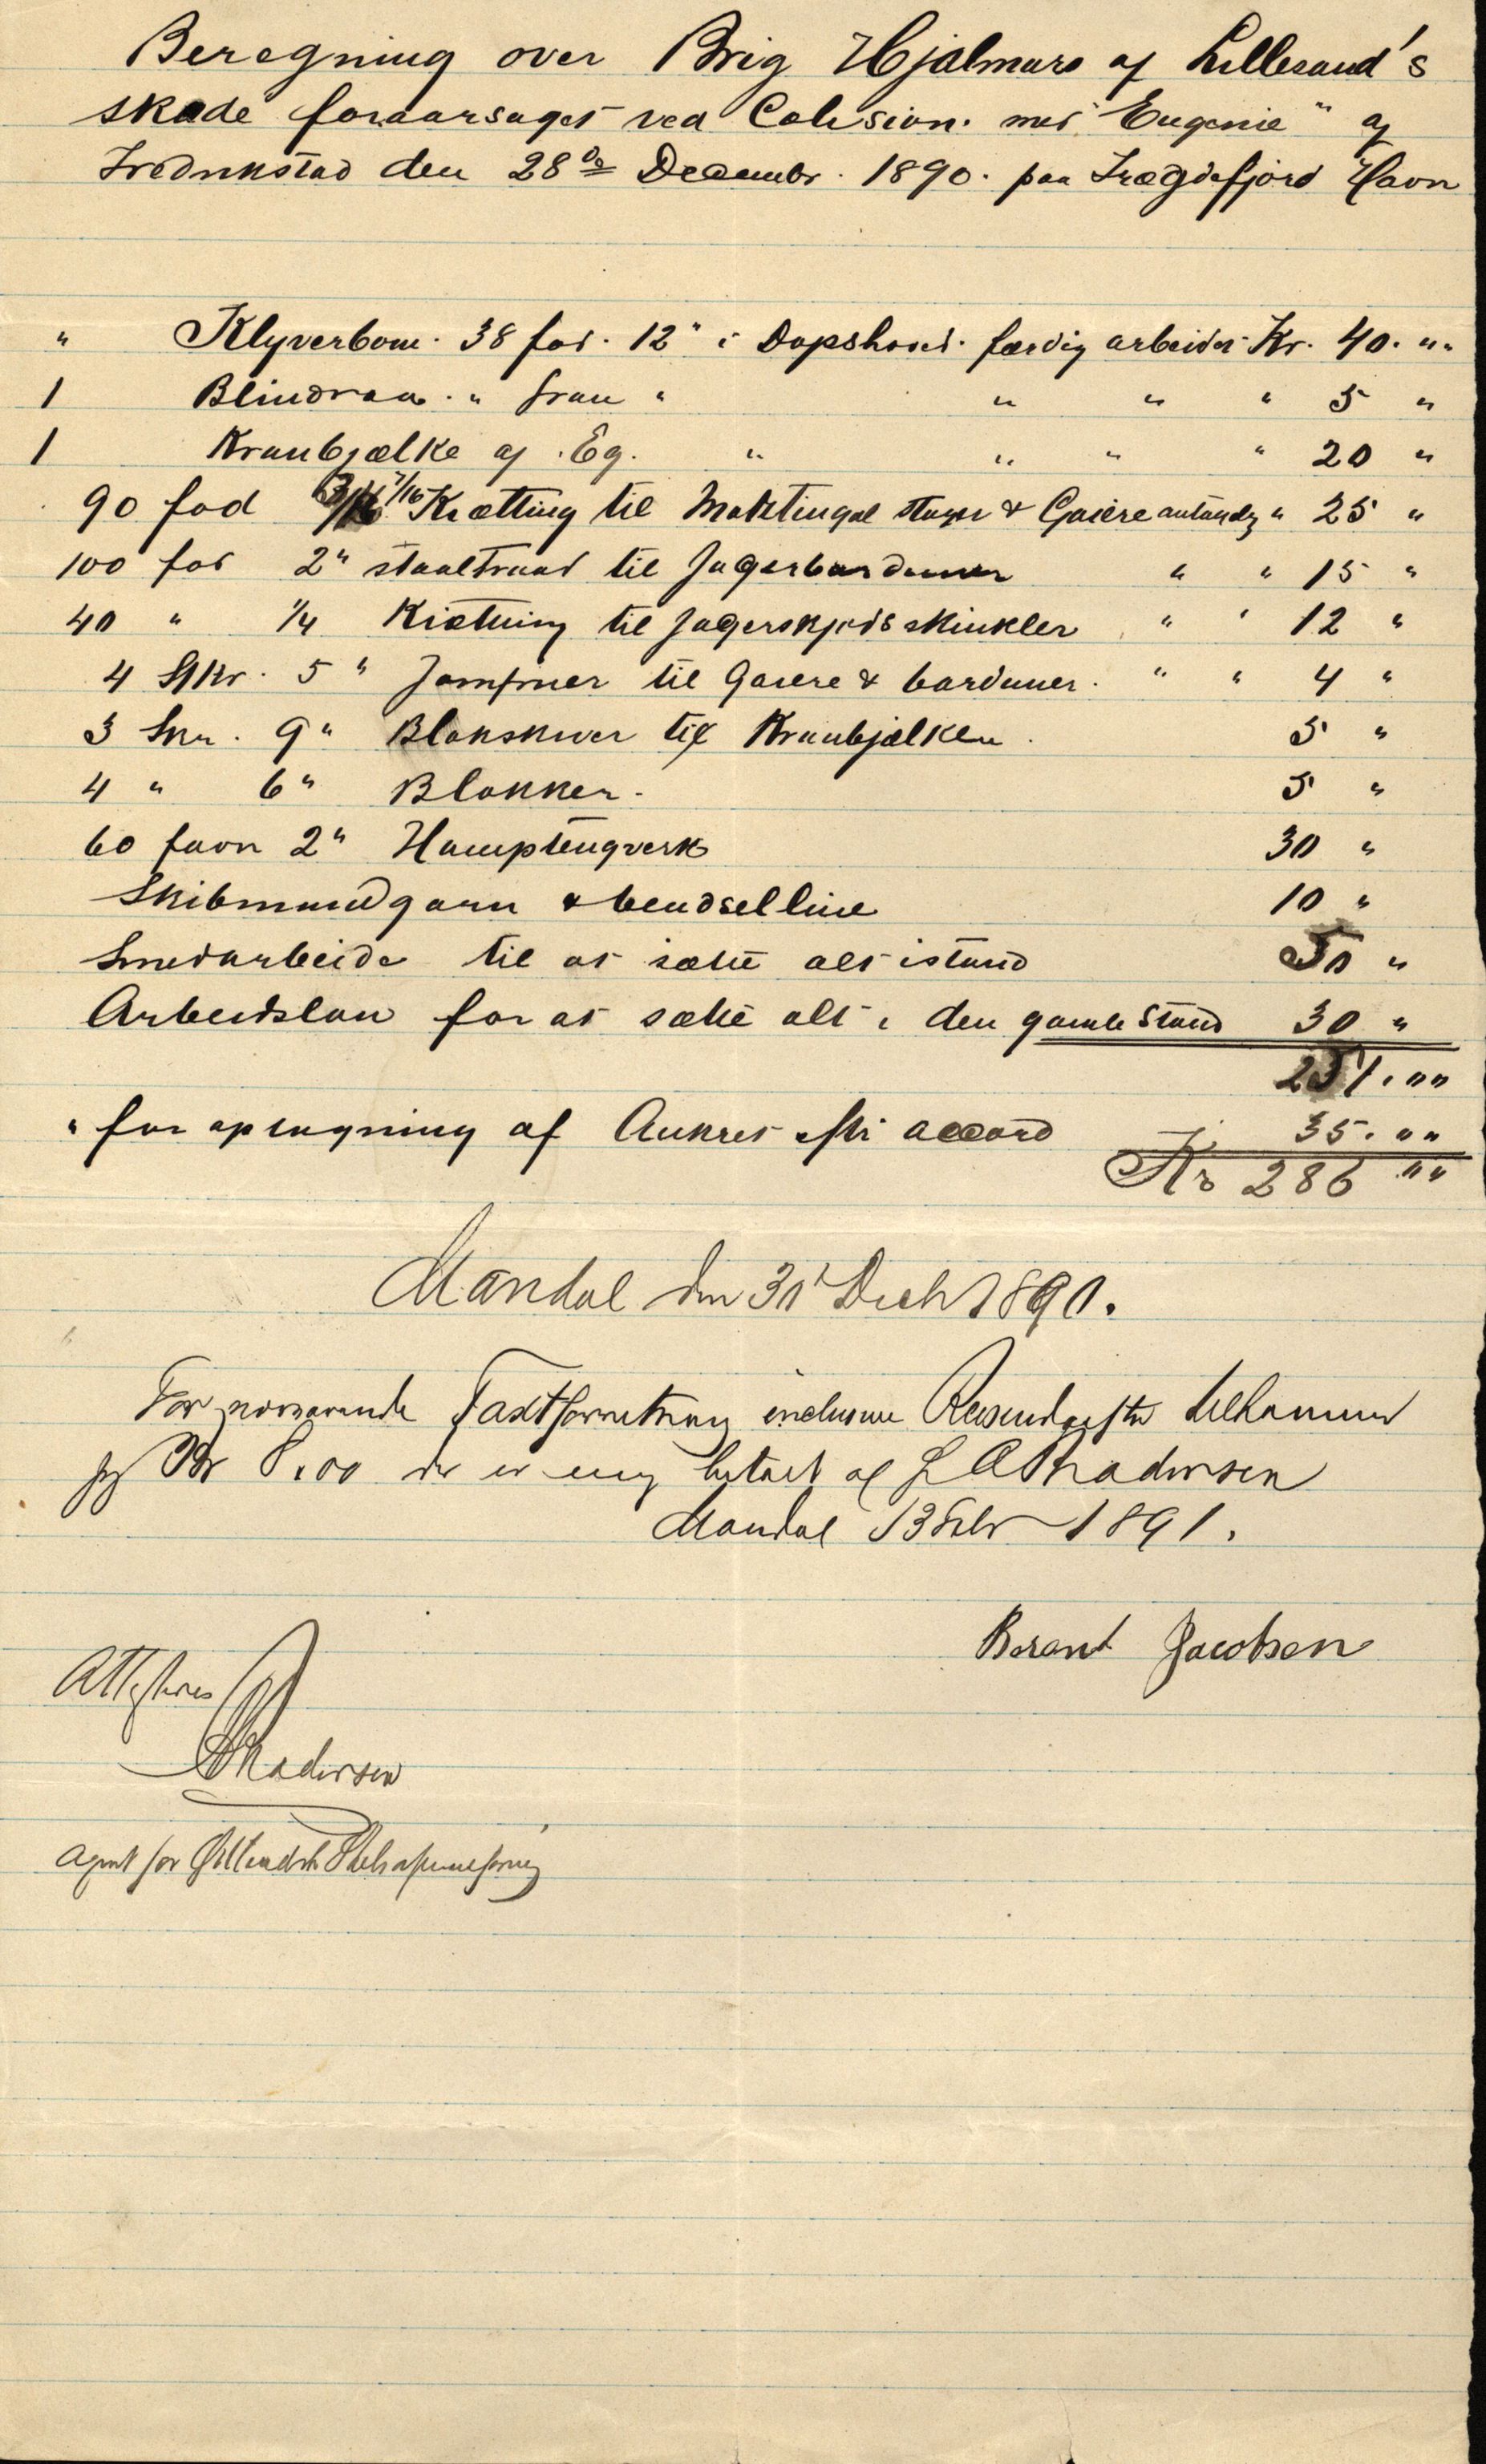 Beregning over Brig Hjalmars af Lillesand's
skade foraarsaget ved Colision. med "Eugenie" af
Fredrikstad den 28de Decembr. 1890. paa Trægdefjord Havn
" Klyverbom. 38 fod. 12" i Dopshoved. færdig arbeidet Kr. 40. " "
1 Blindraa. " Gran " " " " 5 "
1 Kranbjælke af Eg. " " " " 20 "
90 fod 7/16 Kætting til Maktingal stager & Gaiere " 25 "
100 fod 2" staaltraad til Jagerbarduner " " 15 "
40 " 1/4 Kiætning til Jagerskjøds skinkler " " 12 "
4 Stkr. 5" Jomfruer til Gaiere & barduner. " " 4 "
3 Skr. 9" Blokskiver til Kranbjælken. 5 "
4 " 6" Blokker. 5 "
60 favn 2" Hamptaugverk 30 "
Skibmandgarn & bendselline 10 "
Smedarbeide til at sætte alt istand 50 "
Arbeidsløn for at sætte alt i den gamle Stand 30 "
251. " "
" for optagning af Ankret efter accord 35. " "
Kr 286 " "
Mandal den 31 Decbr 1890.
For nærværende Taxtforretning inclusive Reiseudgifter tilkommer
jeg Kr 8.00 der er mig betalt af L A Andersen
Mandal 13 Febr 1891.
Berent Jacobsen
Attesteres
Andersen
Agent for